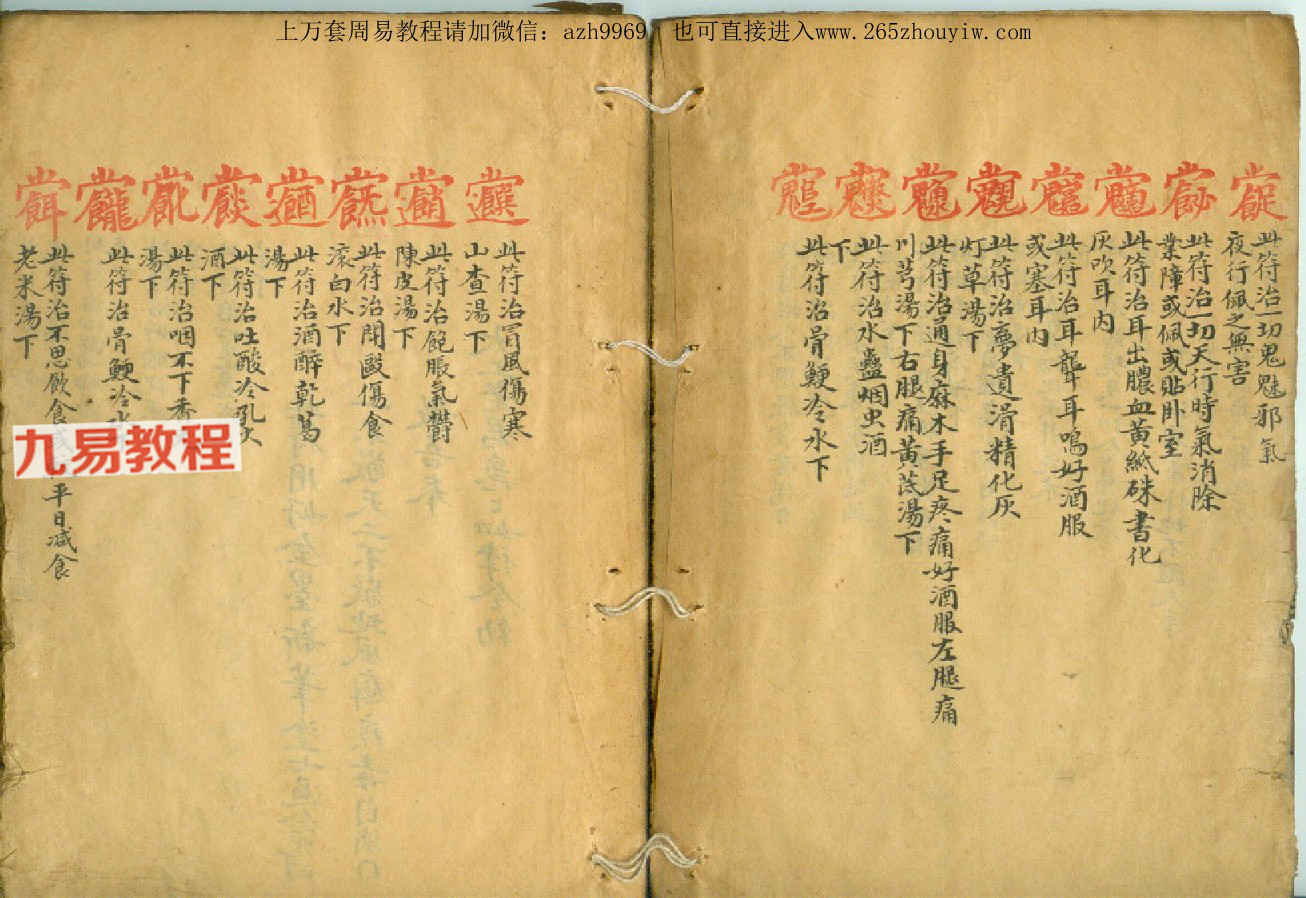 上万套周易教程请加微信：azh9969 也可直接进入www.265zhouyiw.com
此符治一切鬼魅邪氣
夜行佩之無害
此符治一切天行時氣消除
業障或佩或貼卧室
此符治耳出膿血黄紙硃書化
灰吹耳内
此符治耳聾耳鳴好酒服
或塞耳内
此符治夢遺滑精化灰
灯草湯下
此符治通身麻木手足疼痛好酒服左腿痛
川芎湯下右腿痛黄茋湯下
此符治水蠱烟虫酒
下
此符治骨鯁冷水下
此符治冐風傷寒
山查湯下
此符治飽脹氣鬱
陳皮湯下
此符治閗毆傷食
滚白水下
此符治酒醉乾葛
湯下
此符治吐酸冷乳
酒下
此符治咽不下香
湯下
此符治骨鯁冷水
此符治不思飲食 平日减食
老米湯下
九易教程